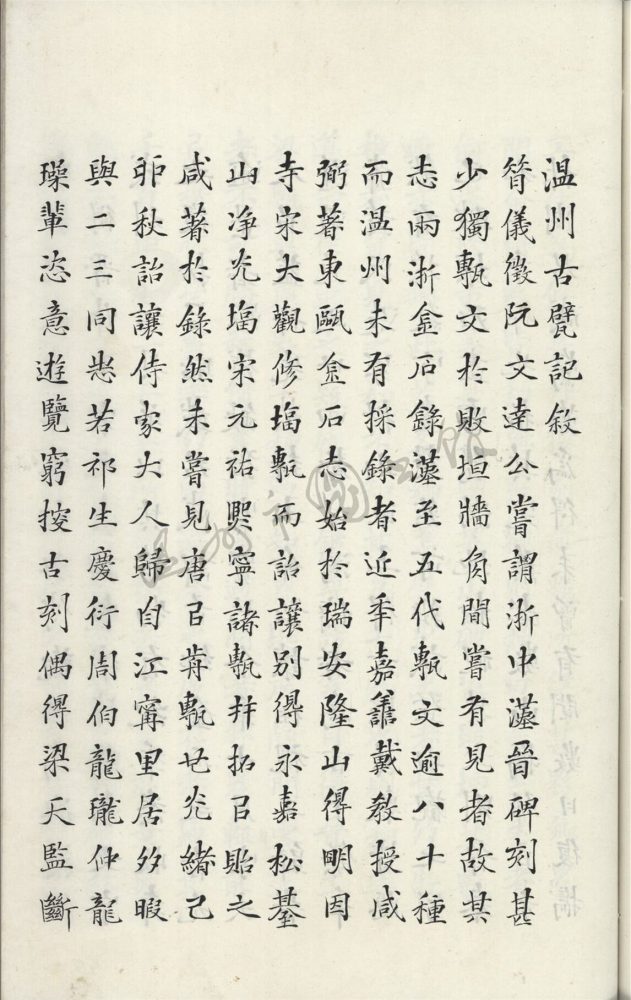 温州古甓記敘
簪儀徵阮文達公嘗謂浙中漢晉碑刻甚
少獨甎文於敗垣牆角間嘗有見者故其
志兩浙金石錄漢至五代甎文逾八十種
而温州未有採錄者近年嘉善戴教授咸
弼著東甌金石志始於瑞安隆山得明因
寺宋大觀修塔甎而詒讓別得永嘉松臺
山净光塔宋元祐熙寧諸甎幷拓㠯貽之
咸著於錄然未嘗見唐㠯歬甎也光緒己
卯秋詒讓侍家大人歸自江寧里居多暇
與二三同志若祁生慶衍周伯龍瓏仲龍
璪輩恣意遊覽窮搜古刻偶得梁天監斷